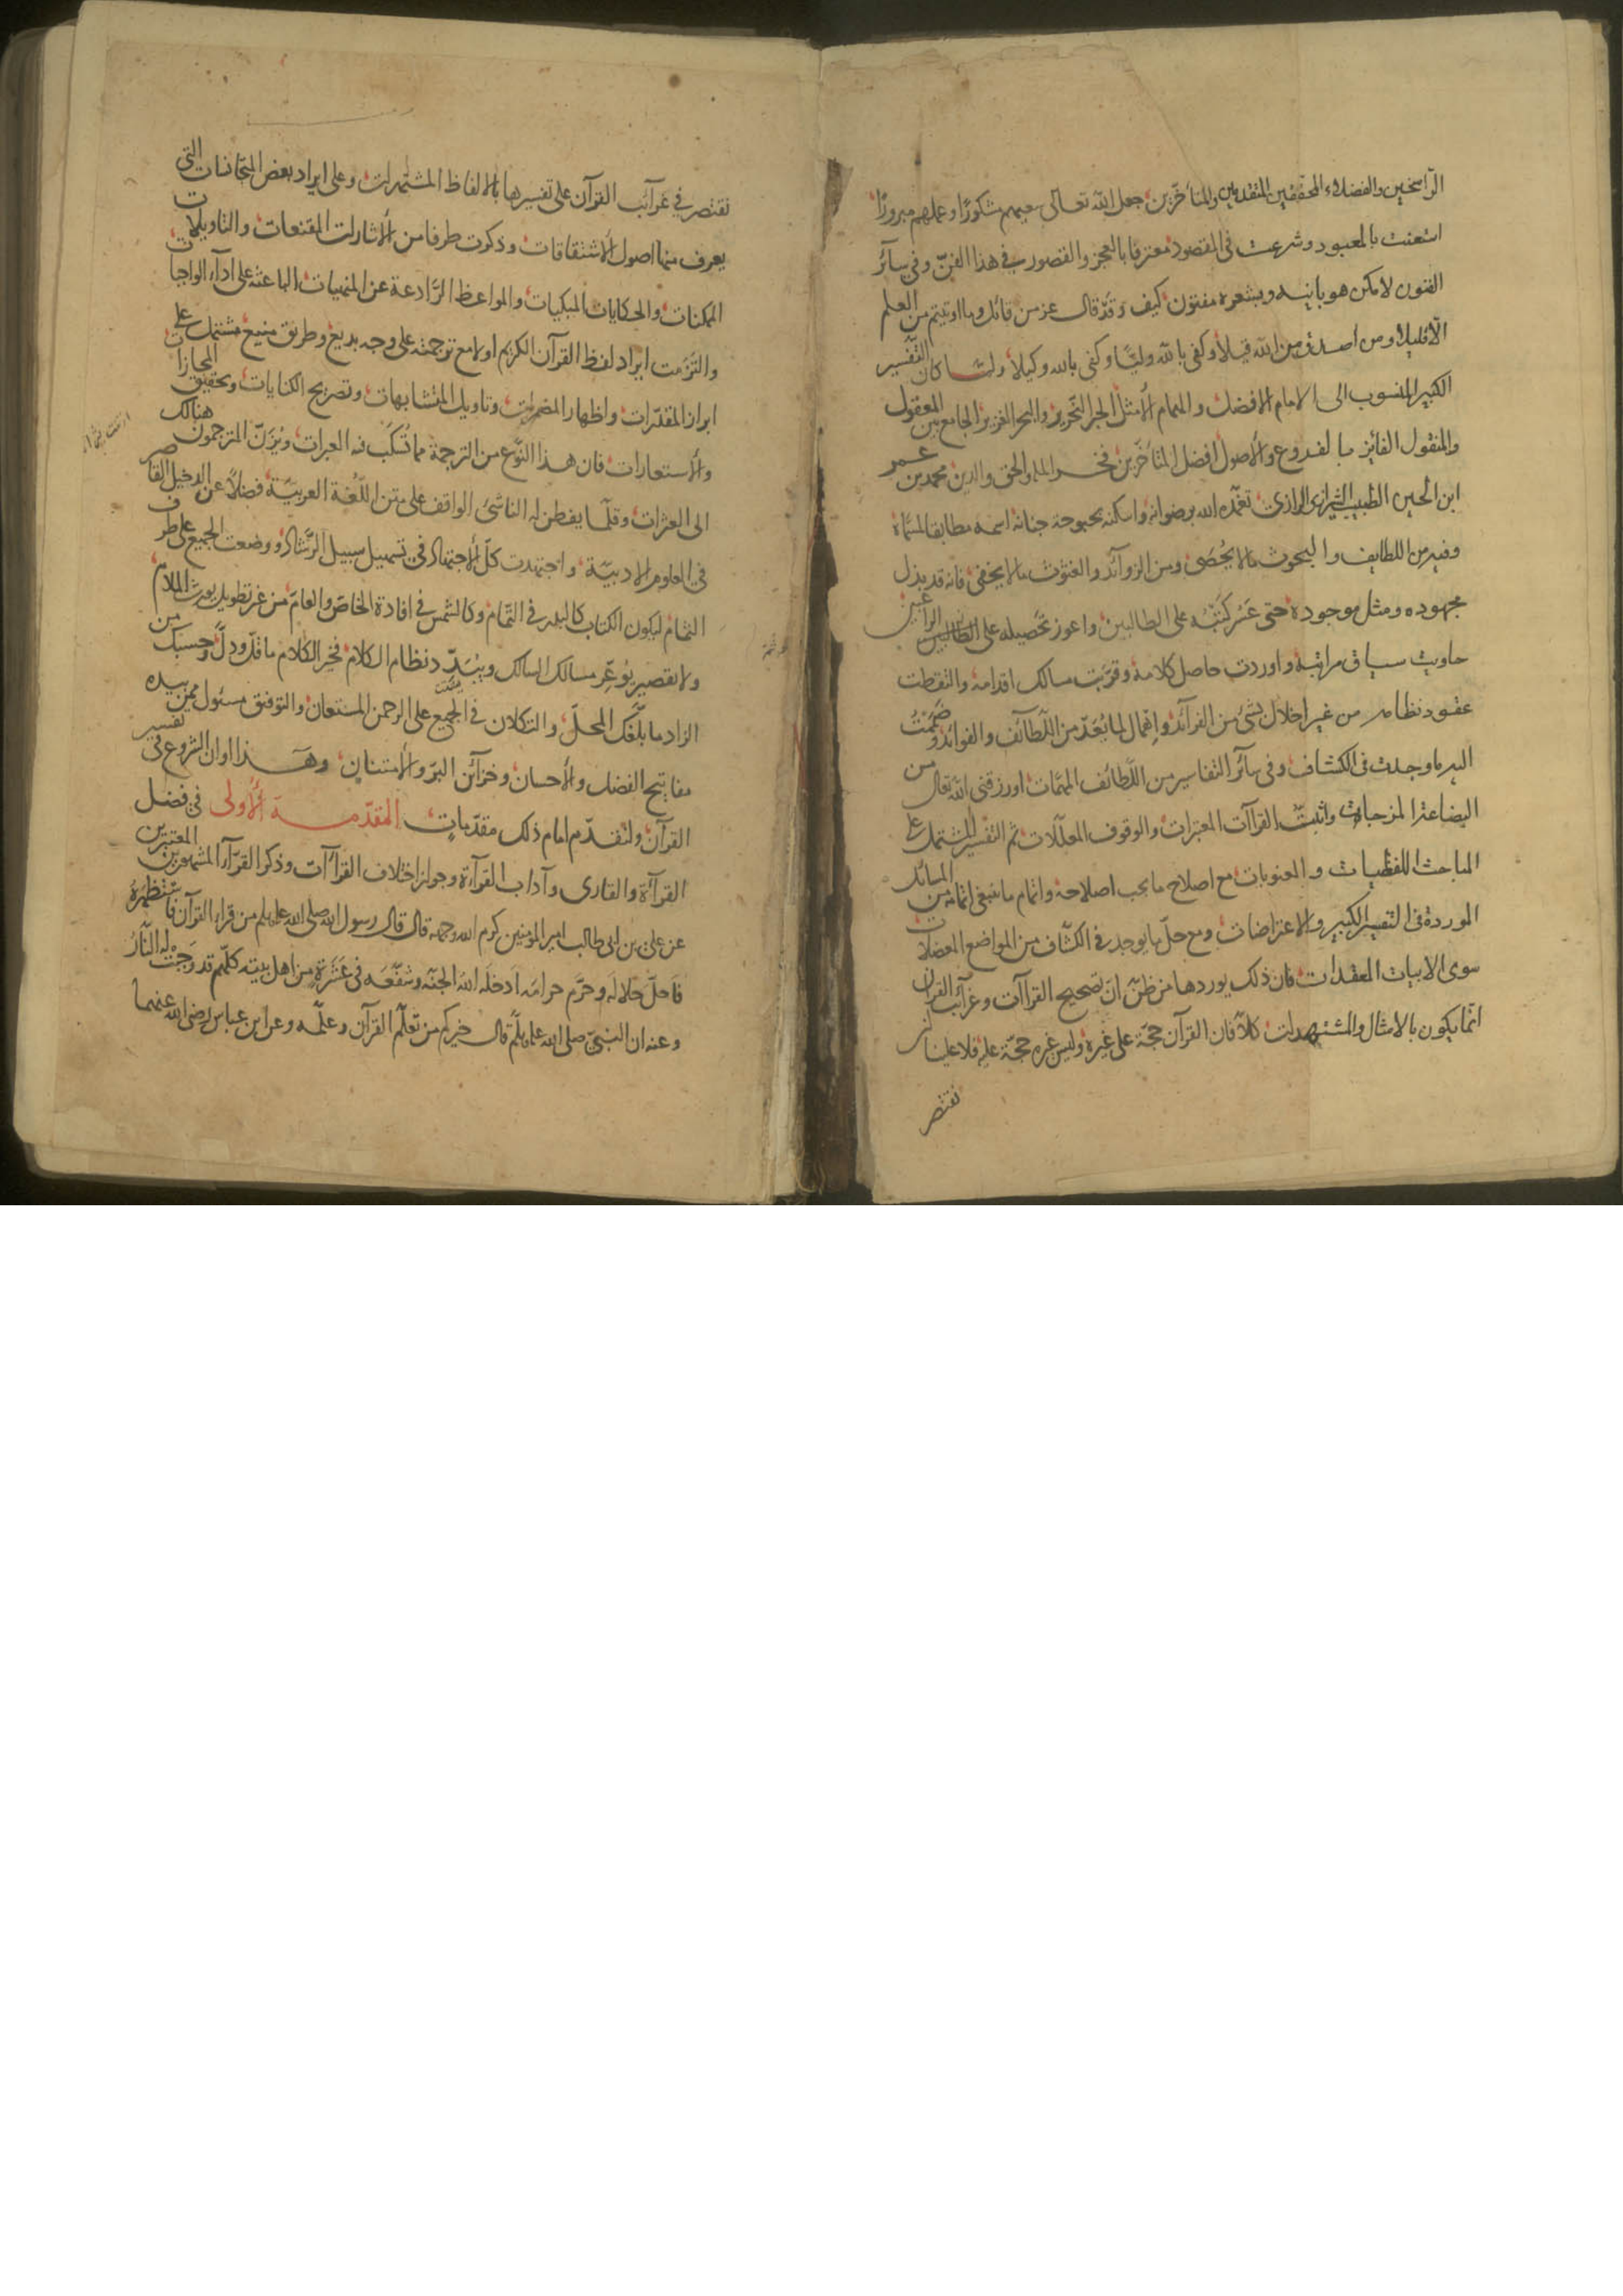 الراسخين والفضلاء المحققين المتقدمين والمتأخرين جعل الله تعالى سعيهم مشكورا وعملهم مبرورا
استعنت بالمعبود وشرعت في المقصود معترفا بالعجز والقصور في هذا الفن وفي سائر
الفنون لا كمن هو بابنه وبشعره مفتون كيف وقد قال عز من قائل وما اوتيتم من العلم
الا قليلا ومن اصدق من الله قيلا وكفى بالله وليا وكفى بالله وكيلا ولما كان التفسير
الكبير المنسوب الى الامام الافضل والهمام الأمثل الحبر النحرير والبحر الغزير الجامع بين المعقول
والمنقول الفائز بالفروع والأصول افضل المتأخرين فخر الملة والحق والدين محمد بن عمر
ابن الحسين الخطيب الرازي تغمده الله برضوانه واسكنه بحبوحة جنانه اسمه مطابقا لمسماه
وفيه من اللطايف والبحوث ما لا يحصى ومن الزوائد والغثوث ما لا يخفى فانه قد بذل
مجهوده ومثل موجوده حتى عسر كتبه على الطالبين واعوز تحصيله على الراغبين
حاويت سياق مرامه واوردت حاصل كلامه وقربت مسالك اقدامه والتقطت
عقود نظامه من غير اخلال بشئ من الفرائد واهمال لما يعد من اللطائف والفوائد وضممت
اليه ما وجدت في الكشاف وفي سائر التفاسير من اللطائف المهمات او رزقني الله تعالى من
البضاعة المزجاة واثبت القراآت المعتبرات والوقوف المعللات ثم التفسير المشتمل على
المباحث اللفظيات والمعنويات مع اصلاح ما يجب اصلاحه واتمام ما ينبغي اتمامه من المسائل
الموردة في التفسير الكبير والاعتراضات ومع حل ما يوجد في الكشاف من المواضع المعضلات
سوى الابيات المعقدات فان ذلك يوردها من ظن ان تصحيح القراآت وغرائب القرآن
انما يكون بالامثال والمستشهدات كلا فان القرآن حجة على غيره وليس غيره حجة عليه فلا علينا ان
نقتصر
نقتصر في غرائب القرآن على تفسيرها بالالفاظ المشتهرات وعلى ايراد بعض المتجانسات التي
يعرف منها اصول الأشتقاقات وذكرت طرفا من الأشارات المقنعات والتاويلات
الممكنات والحكايات المبكيات والمواعظ الرادعة عن المنهيات الباعثة على اداء الواجبات
والتزمت ايراد لفظ القرآن الكريم اولا مع ترجمته على وجه بديع وطريق منيع مشتمل على
ابراز المقدرات واظهار المضمرات وتاويل المتشابهات وتصريح الكنايات وتحقيق المجازات
والأستعارات فان هذا النوع من الترجمة مما تسكب فيه العبرات ويزن المترجمون هنالك
الى العثرات وقلما يفطن له الناشئ الواقف على متن اللغة العربية فضلا عن الدخيل القاصر
في العلوم الادبية واجتهدت كل الأجتهاد في تسهيل سبيل الرشاد ووضعت الجميع على طرف
الثمام ليكون الكتاب كالبدر في التمام وكالشمس في افادة الخاص والعام من غير تطويل يورث الملام
ولا تقصير يوعر مسالك السالك ويبدد نظام الكلام فخير الكلام ما قل ودل وحسبك من
الزاد ما بلغك المحل والتكلان في الجميع على الرحمن المستعان والتوفيق مسئول ممن بيده
مفاتيح الفضل والأحسان وخزائن البر والأمتنان وهذا اوان الشروع في تفسير
القرآن ولنقدم امام ذلك مقدمات المقدمة الأولى في فضل
القراءة والقارى وآداب القراءة وجواز اختلاف القراآت وذكر القراء المشهورين المعتبرين
عن علي بن ابي طالب امير المؤمنين كرم الله وجهه قال قال رسول الله صلى الله عليه وسلم من قرا القرآن فاستظهره
فاحل حلاله وحرم حرامه ادخله الله الجنة وشفعه في عشرة من اهل بيته كلهم قد وجبت له النار
وعنه ان النبي صلى الله عليه وسلم قال خيركم من تعلم القرآن وعلمه وعن ابن عباس رضي الله عنهما